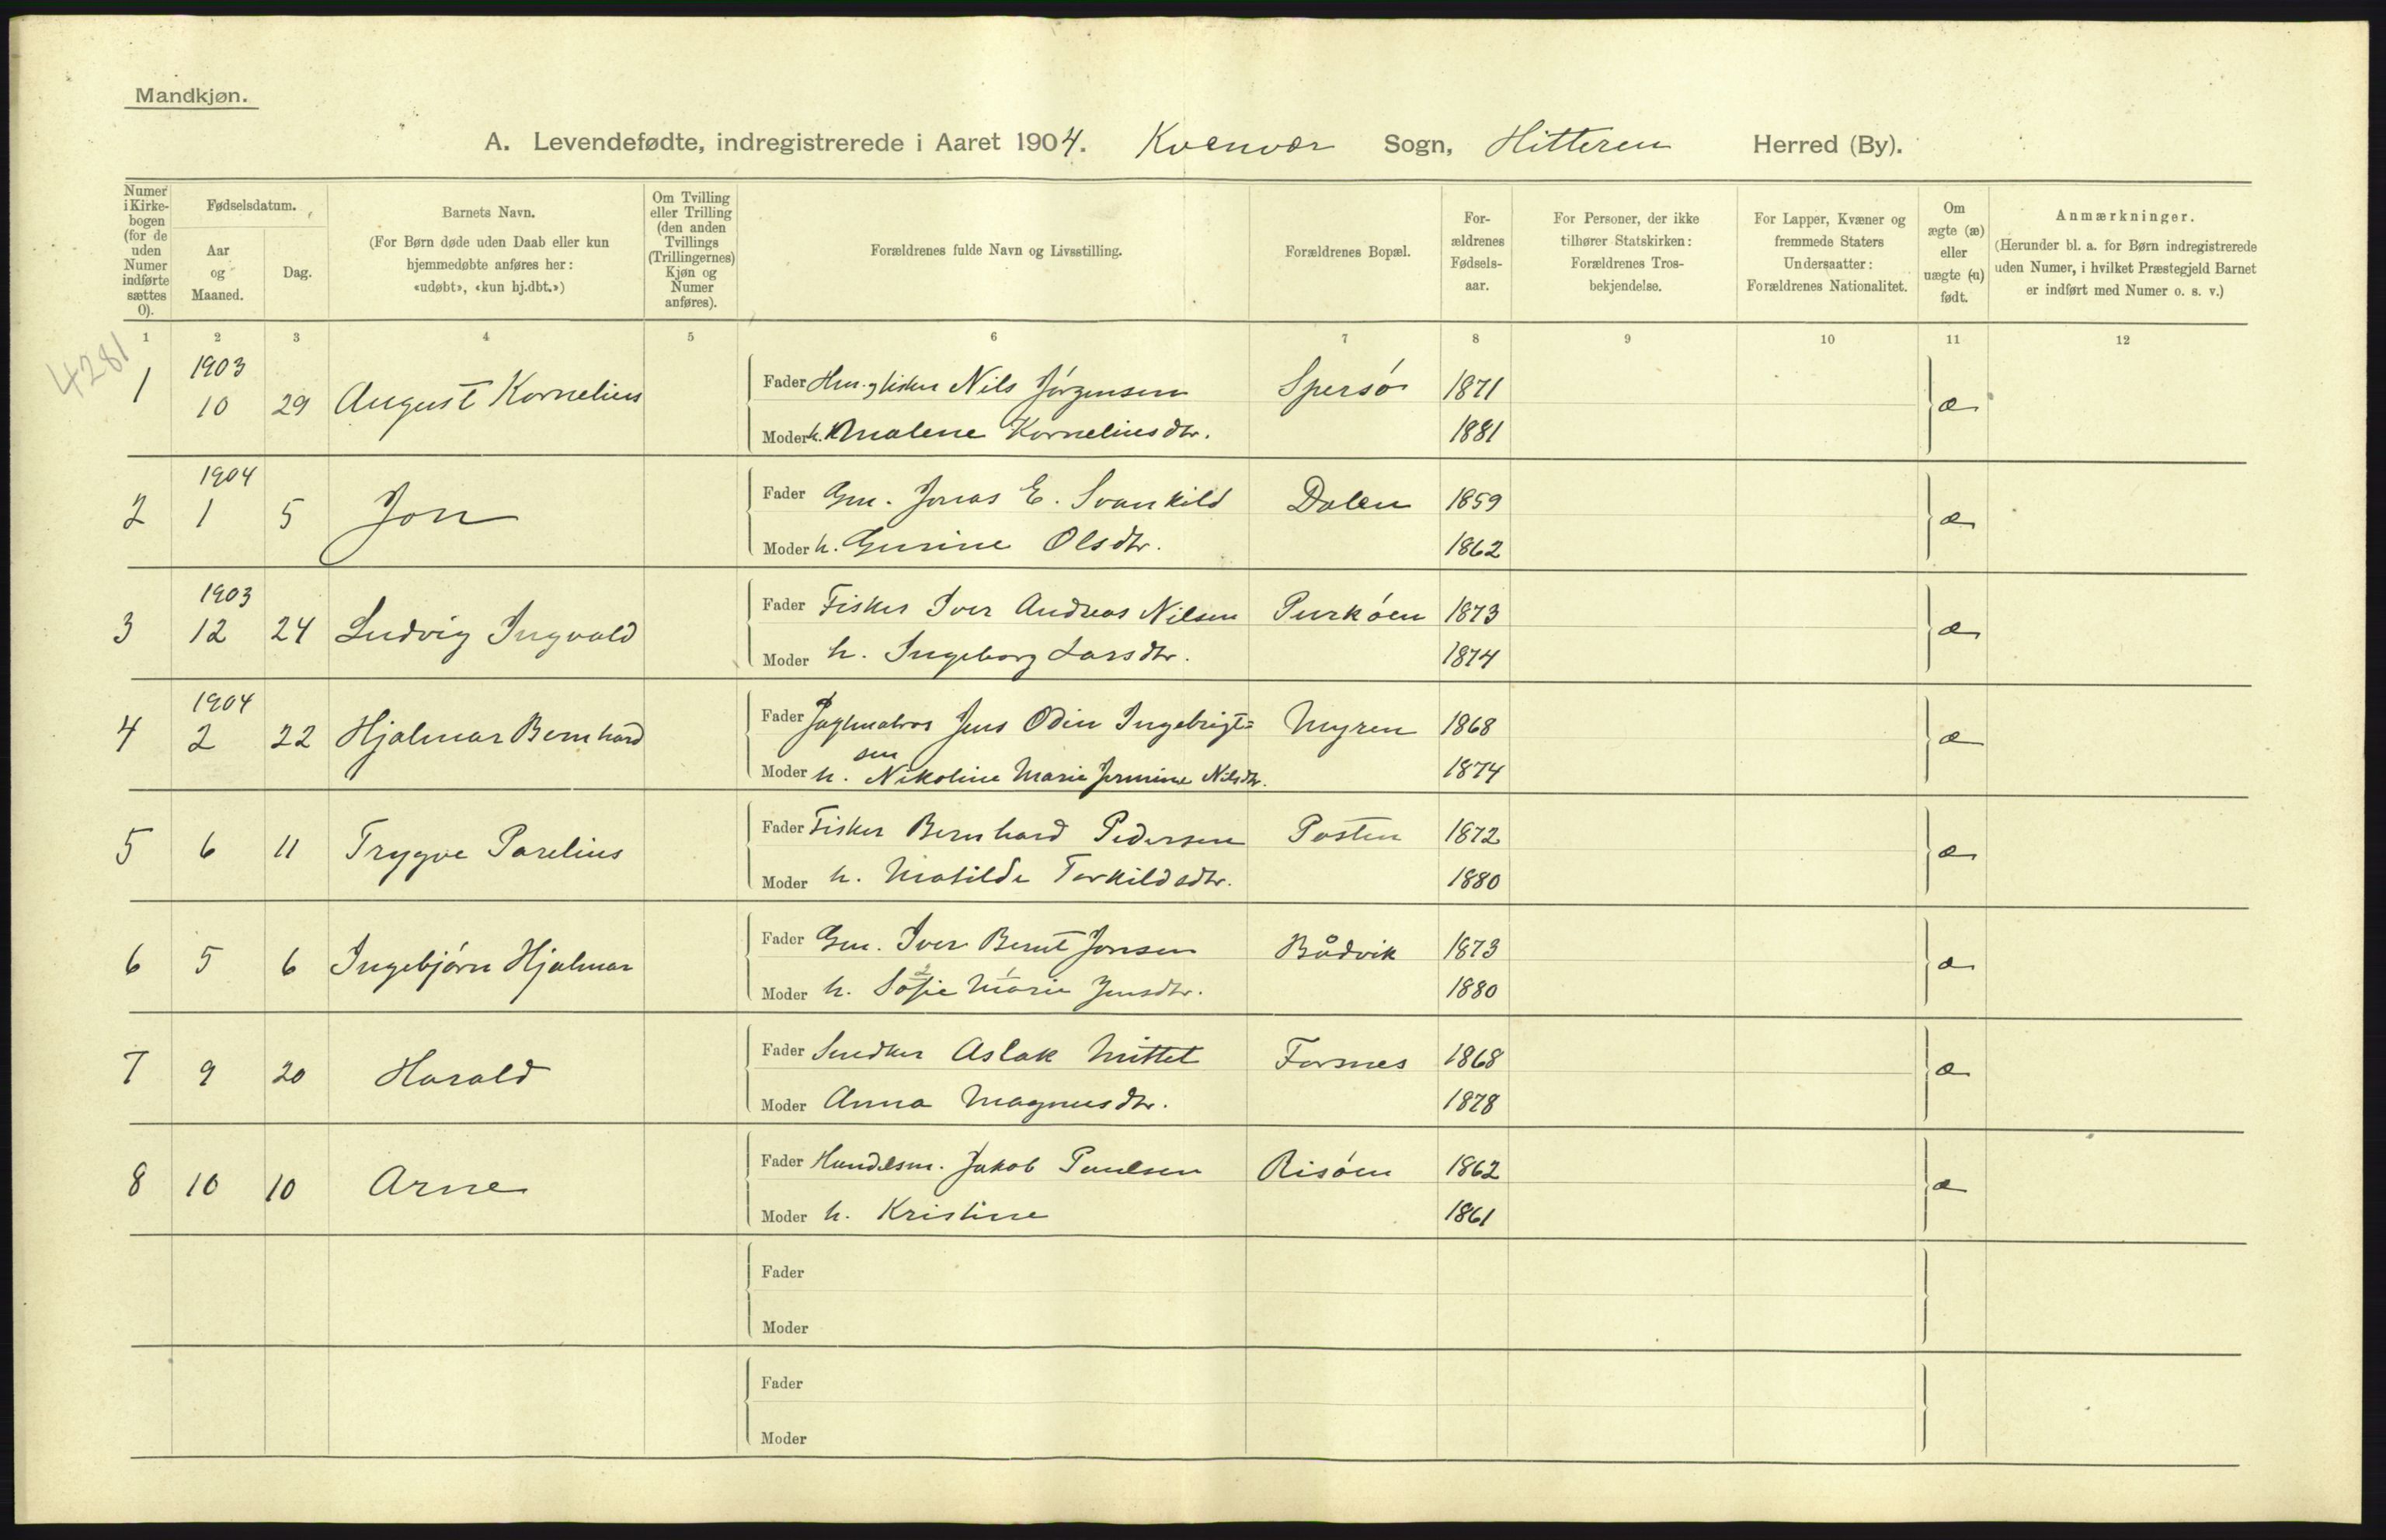 Mandkjøn.
A. Levendefødte, indregistrerede i Aaret 1904. Kvenvær Sogn, Hitteren Herred (By).
Numer i Kirke-bogen (for de uden Numer indførte sættes 0).
Fødselsdatum.
Aar og Maaned.
Dag.
Barnets Navn.
(For Børn døde uden Daab eller kun hjemmedøbte anføres her: «udøbt», «kun hj.dbt.»)
Om Tvilling eller Trilling (den anden Tvillings (Trillingernes) Kjøn og Numer anføres).
Forældrenes fulde Navn og Livsstilling.
Forældrenes Bopæl.
For-ældrenes Fødsels-aar.
For Personer, der ikke tilhører Statskirken: Forældrenes Tros-bekjendelse.
For Lapper, Kvæner og fremmede Staters Undersaatter: Forældrenes Nationalitet.
Om ægte (æ) eller uægte (u) født.
Anmærkninger.
(Herunder bl. a. for Børn indregistrerede uden Numer, i hvilket Præstegjeld Barnet er indført med Numer o. s. v.)
1 2 3 4 5 6 7 8 9 10 11 12
4281
1 1903 10 29 August Kornelius Fader Hm. Nils Jørgensen Spersø 1871 æ
Moder h. Malene Korneliusdtr. 1881
2 1904 1 5 Jon Fader Gm. Jonas E. Svankild Dalen 1859 æ
Moder h. Gurine Olsdtr. 1862
3 1903 12 24 Ludvig Ingvald Fader Fisker Iver Andreas Nilsen Purkøen 1873 æ
Moder h. Ingeborg Larsdtr. 1874
4 1904 2 22 Hjalmar Bernhard Fader Jens Odin Ingebrigt= Myren 1868 æ
sen
Moder h. Nikoline Marie Jermine Nilsdtr. 1874
5 6 11 Trygve Parelius Fader Fisker Bernhard Pedersen Posten 1872 æ
Moder h. Matilde Torkildsdtr. 1880
6 5 6 Ingebjørn Hjalmar Fader Gm. Iver Bernt Jonsen Bådvik 1873 æ
Moder h. Sofie Marie Jensdtr. 1880
7 9 20 Harald Fader Snedker Aslak Mittet Forsnes 1868 æ
Moder Anna Magnusdtr. 1878
8 10 10 Arne Fader Handelsm. Jakob Paulsen Risøen 1862 æ
Moder h. Kristine 1861
Fader
Moder
Fader
Moder